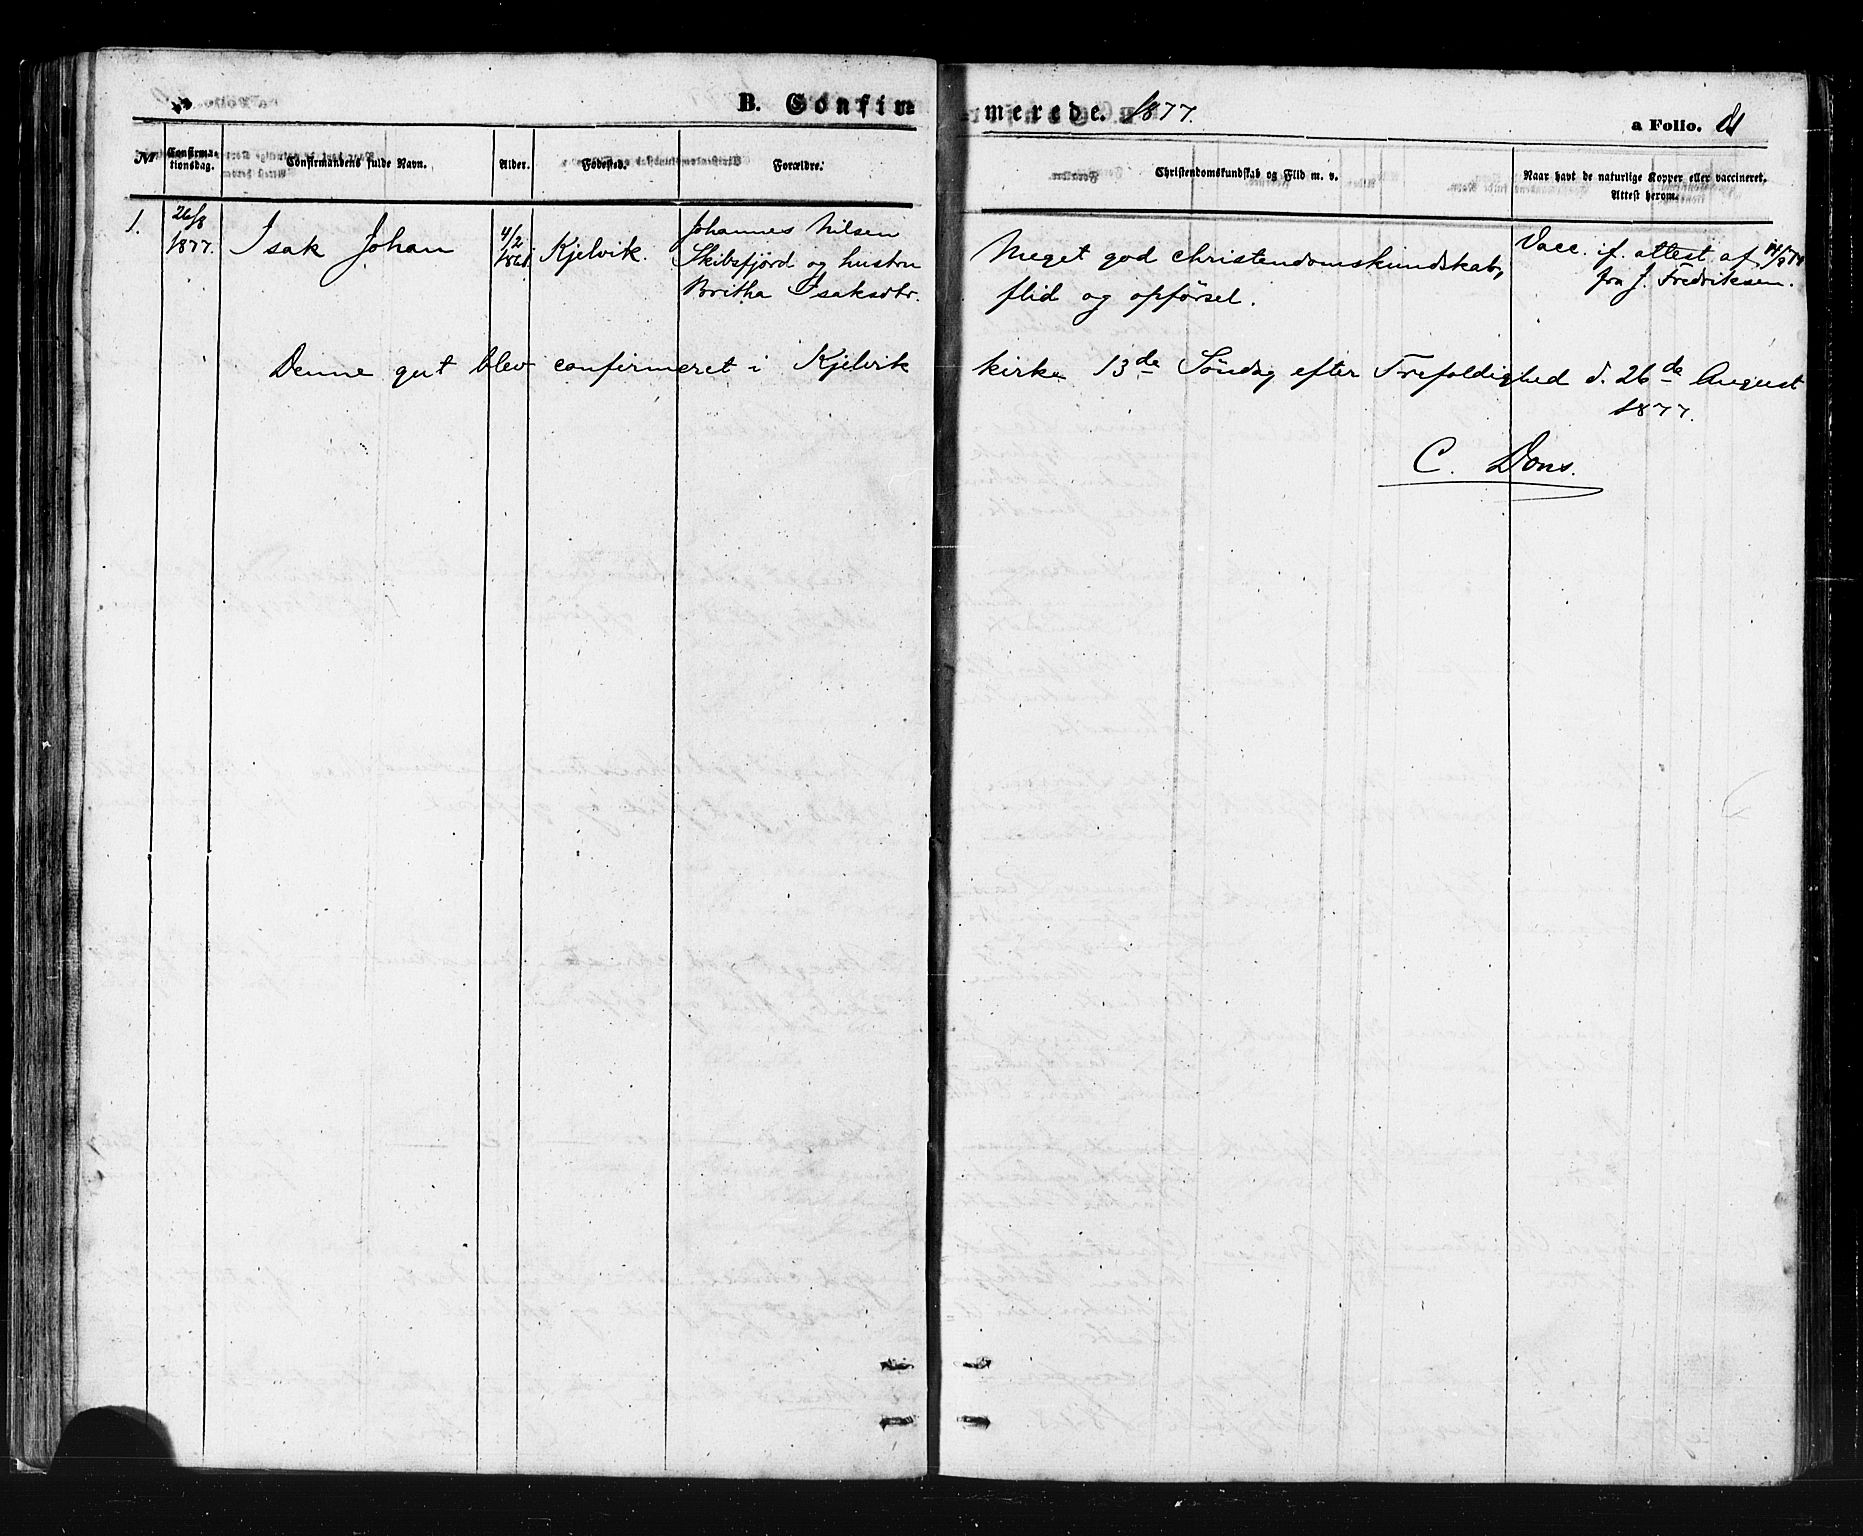 B. Confir=
merede. 1877.
a Folio.
№
Confirma=
tionsdag.
Confirmandens fulde Navn.
Alder.
Fødested.
Forældre.
Christendomskundskab og Flid m. v.
Naar havt de naturlige Kopper eller vaccineret.
Attest herom.
1.
26/8
1877.
Isak Johan
4/2
Kjelvik.
Johannes Nilsen
Skibsfjord og hustru
Britha Isaksdtr.
Meget god christendomskundskab,
flid og opførsel.
Vacc. if. attest af
fra J. Fredriksen.
Denne gut blev confirmeret i Kjelvik
kirke 13de Søndag efter Trefoldighed d. 26de August
1877.
C. Dons.